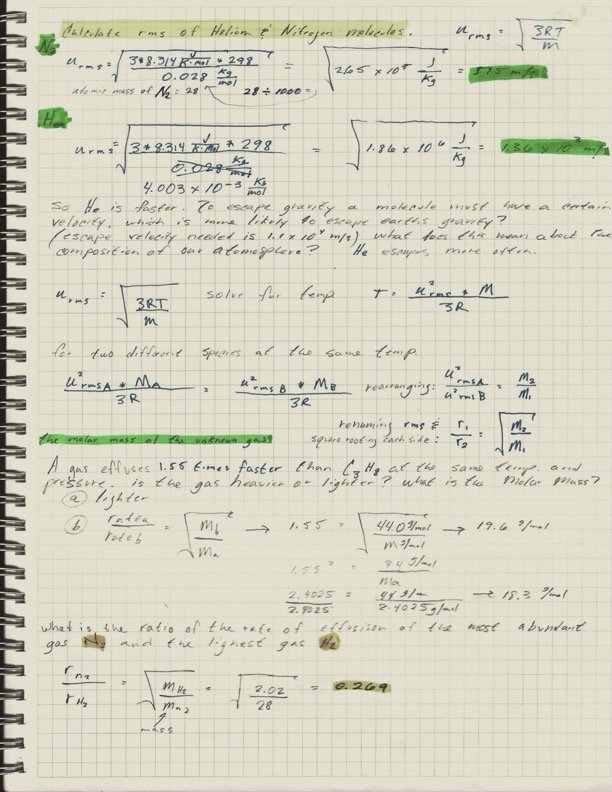 Calculate rms of Helium & Nitrogen molecules. u rms = √3RT/m
N₂
u rms = √3*8.314 J/K·mol * 298 / 0.028 kg/mol = √265 x 10⁵ J/kg = 515 m/s
atomic mass of N₂ = 28 28 ÷ 1000 =
He
u rms = √3*8.314 J/K·mol * 298 / 0.028 kg/mol = √1.86 x 10⁶ J/kg = 1.36 x 10³ m/s
4.003 x 10⁻³ kg/mol
So He is faster. To escape gravity a molecule must have a certain
velocity, which is more likely to escape earths gravity?
(escape velocity needed is 1.1 x 10⁴ m/s) what does this mean about the
composition of our atomosphere? He escapes more often.
u rms = √3RT/m solve for temp T = u²rms * M / 3R
for two different species at the same temp.
u²rmsA * MA / 3R = u²rmsB * MB / 3R rearranging: u²rmsA / u²rmsB = M₂/M₁
renaming rms &
square rooting each side: r₁/r₂ = √M₂/M₁
the molar mass of the unknown gas?
A gas effuses 1.55 times faster than C₃H₈ at the same temp. and
pressure. is the gas heavier or lighter? what is the Molar Mass?
(a) lighter
(b) rate a / rate b = √Mb/Ma → 1.55 = √44.0 g/mol / m g/mol → 19.6 g/mol
1.55² = 44 g/mol / Ma
2.4025 / 2.4025 = 44 g/m / 2.4025 g/mol → 18.3 g/mol
what is the ratio of the rate of effusison of the most abundant
gas N₂ and the lighest gas H₂
r n₂ / r H₂ = √mH₂/mn₂ = √2.02/28 = 0.269
mass